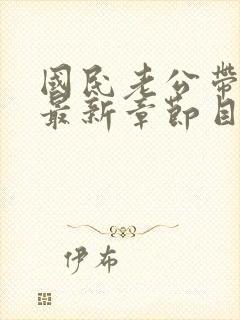 國民老公帶
最新章節目
伊布